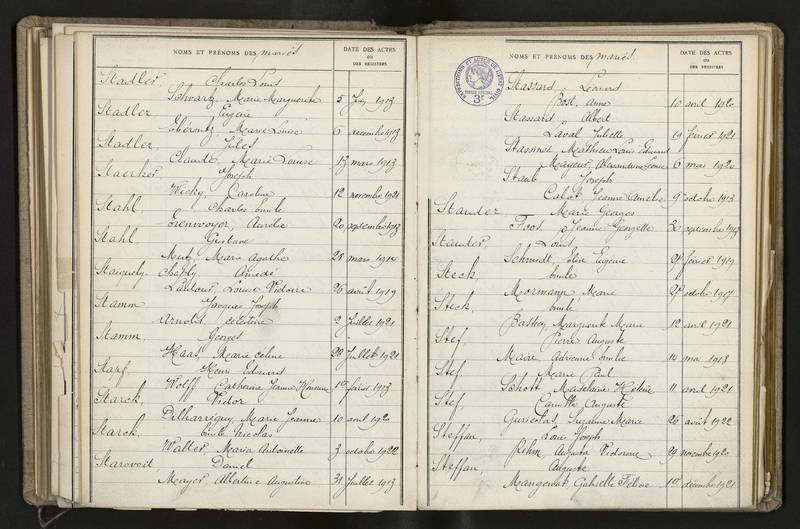 NOMS ET PRÉNOMS DES mariés
DATE DES ACTES
OU
DES REGISTRES
Stadler, Charles Louis
Schwartz, Marie Marguerite 5 1913
Stadler, Eugène
Marie Louise 6 décembre 1913
Stadler, Jules
Claude, Marie Louise 13 mars 1913
Staerker, Joseph
Vichy, Caroline 12 novembre 1921
Stahl, Charles Emile
Aurélie 20 septembre 1913
Stahl, Gustave
Mutz, Marie Agathe 28 mars 1914
Amédé
Lautour, Louise Victoire 26 août 1919
Stamm, Jacques Joseph
Arnold, Célestine 2 Juillet 1921
Stamm, Georges
Haas, Marie Céline 29 Juillet 1921
Stapf, Henri Edouard
Wolff, Catherine Jeanne 1er février 1913
Starck, Victor
Delharréguy, Marie Jeanne 10 avril 1920
Starck, Emile Nicolas
Walter, Maria Antoinette 3 octobre 1922
Starovoit, Daniel
Meayer, Albertine Augustine 31 Juillet 1913
NOMS ET PRÉNOMS DES mariés
DATE DES ACTES
OU
DES REGISTRES
3F
Stassard, Léonard
Bost, Anne 10 avril 1920
Stassard, Albert
Laval, Juliette 19 février 1921
Mathieu Louis Edouard
Mayeur, Alexandrine 6 mai 1920
Staub, Joseph
Calot, Jeanne 9 octobre 1913
Stauder, Marie Georges
Foos, Jeanne Georgette 2 septembre 1913
Stauder, Louis
Schmidt, Eugénie février 1919
Steck, Emile
Murmann, Marie octobre 1917
Steck, Emile
Marguerite Marie 12 avril 1921
Stef, Pierre Auguste
Maire, Adrienne Emilie 14 mai 1918
Stef, Marie Paul
Schott, Madeleine Hélène 11 avril 1921
Stef, Camille Auguste
Suzanne Marie 26 août 1922
Steffan, Louis Joseph
Rehm, Augusta Victorine 29 novembre 1920
Steffan, Auguste
Mangenot, Gabrielle 1er décembre 1921